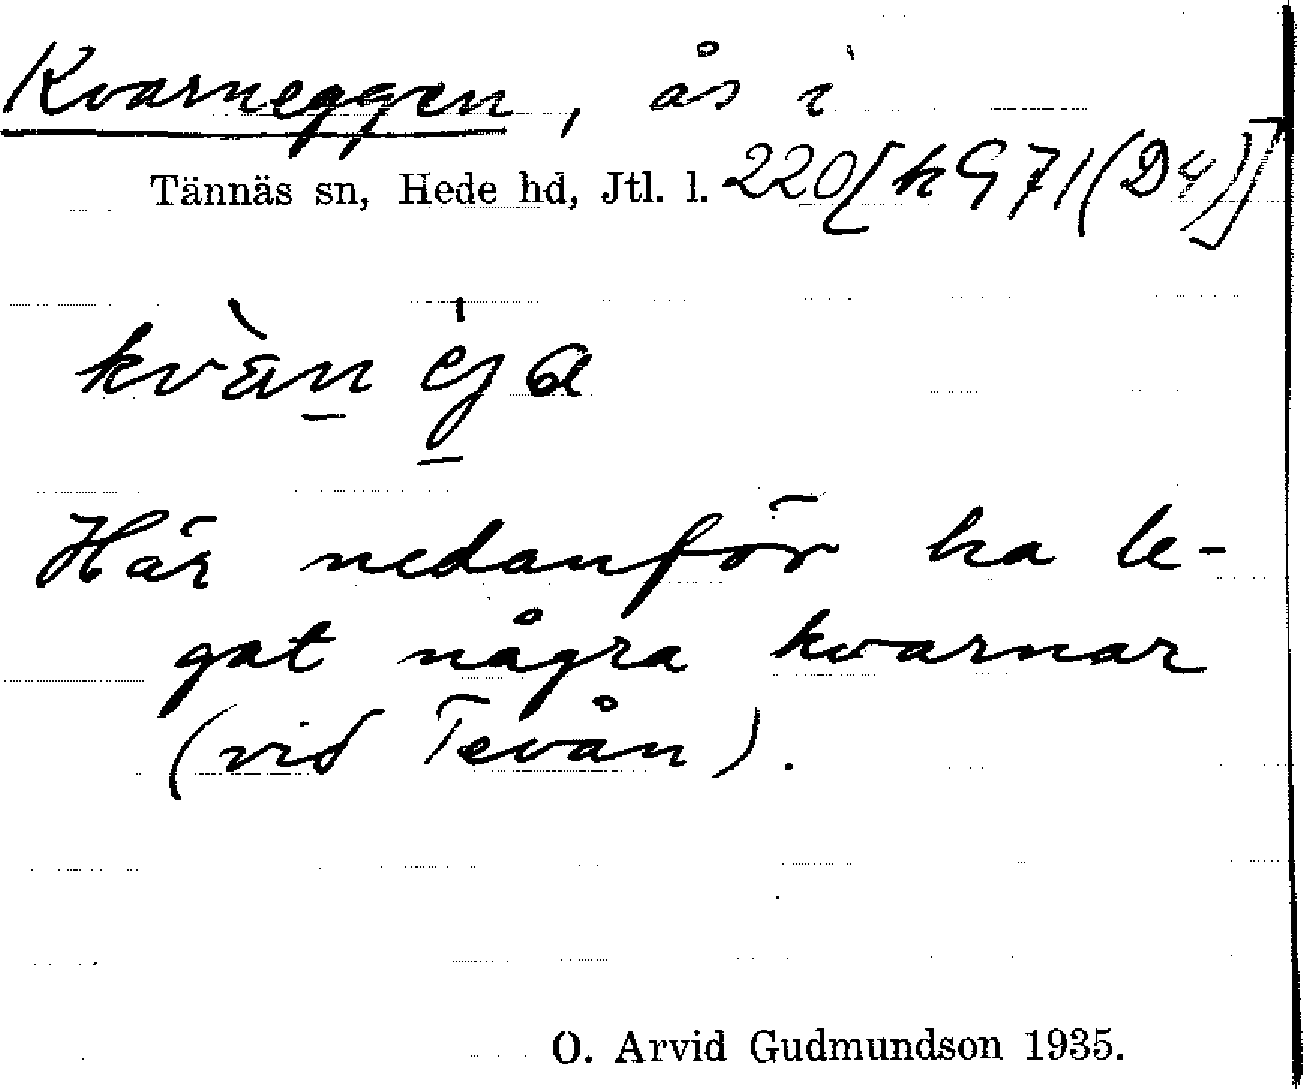 Kvarneggen, ås i
Tännäs sn, Hede hd, Jtl. l. 220[hG71(D4)]
kvàn ega
Här nedanför ha le-
gat några kvarnar
(vid Tevån).
O. Arvid Gudmundson 1935.